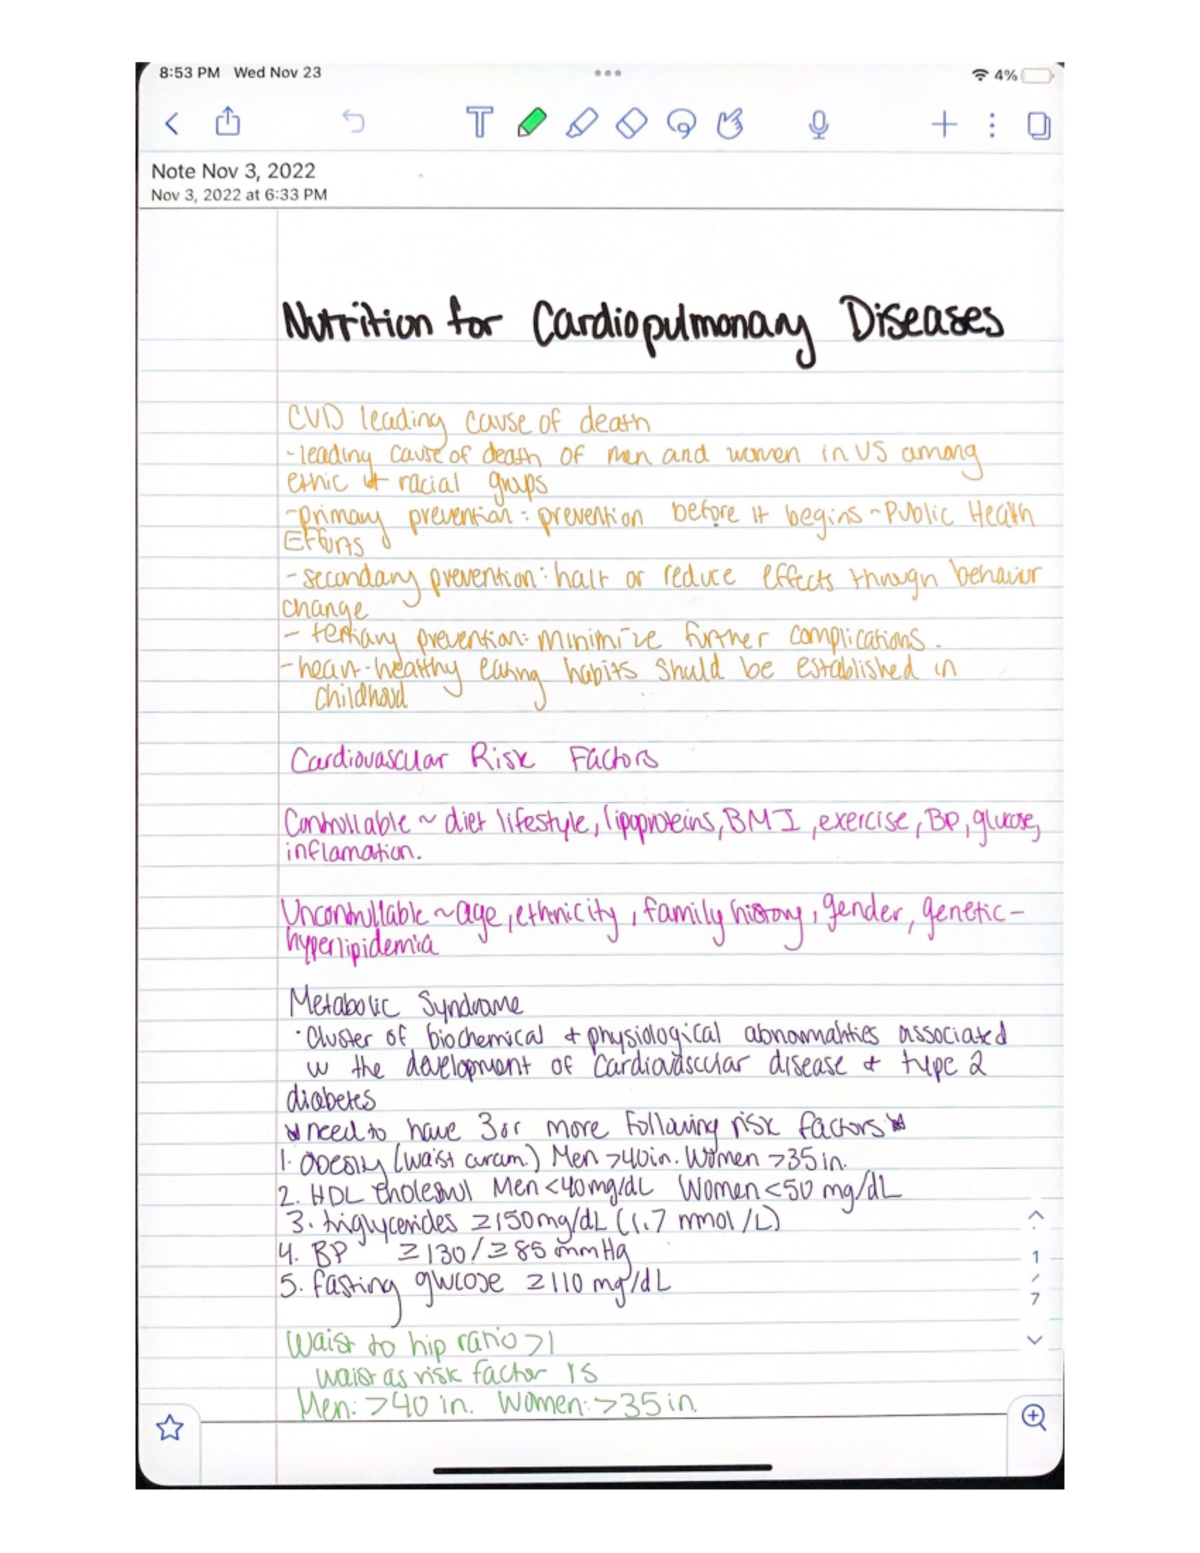 8:53 PM Wed Nov 23
4%
T
Note Nov 3, 2022
Nov 3, 2022 at 6:33 PM
Nutrition for Cardiopulmonary Diseases
CVD leading cause of death
-leading cause of death of men and women in US among
ethic & racial groups
-primary prevention: prevention before it begins ~ Public Health
Efforts
-secondary prevention: halt or reduce effects through behavior
change
- tertiary prevention: minimize further complications.
-heart-healthy eating habits should be established in
childhood
Cardiovascular Risk Factors
Controllable ~ diet lifestyle, lipoproteins, BMI, exercise, BP, glucose,
inflamation.
Uncontrollable ~ age, ethnicity, family history, gender, genetic-
hyperlipidemia
Metabolic Syndrome
· Cluster of biochemical + physiological abnormalities associated
w the development of cardiovascular disease + type 2
diabetes
*need to have 3 or more following risk factors*
1. Obesity (waist circum.) Men >40in. Women >35in.
2. HDL cholesterol Men <40mg/dL Women <50 mg/dL
3. triglycerides ≥150mg/dL (1.7 mmol/L)
4. BP ≥130/≥85 mmHg
5. fasting glucose ≥110 mg/dL
1
/
7
Waist to hip ratio >1
waist as risk factor is
Men: >40 in. Women: >35in.